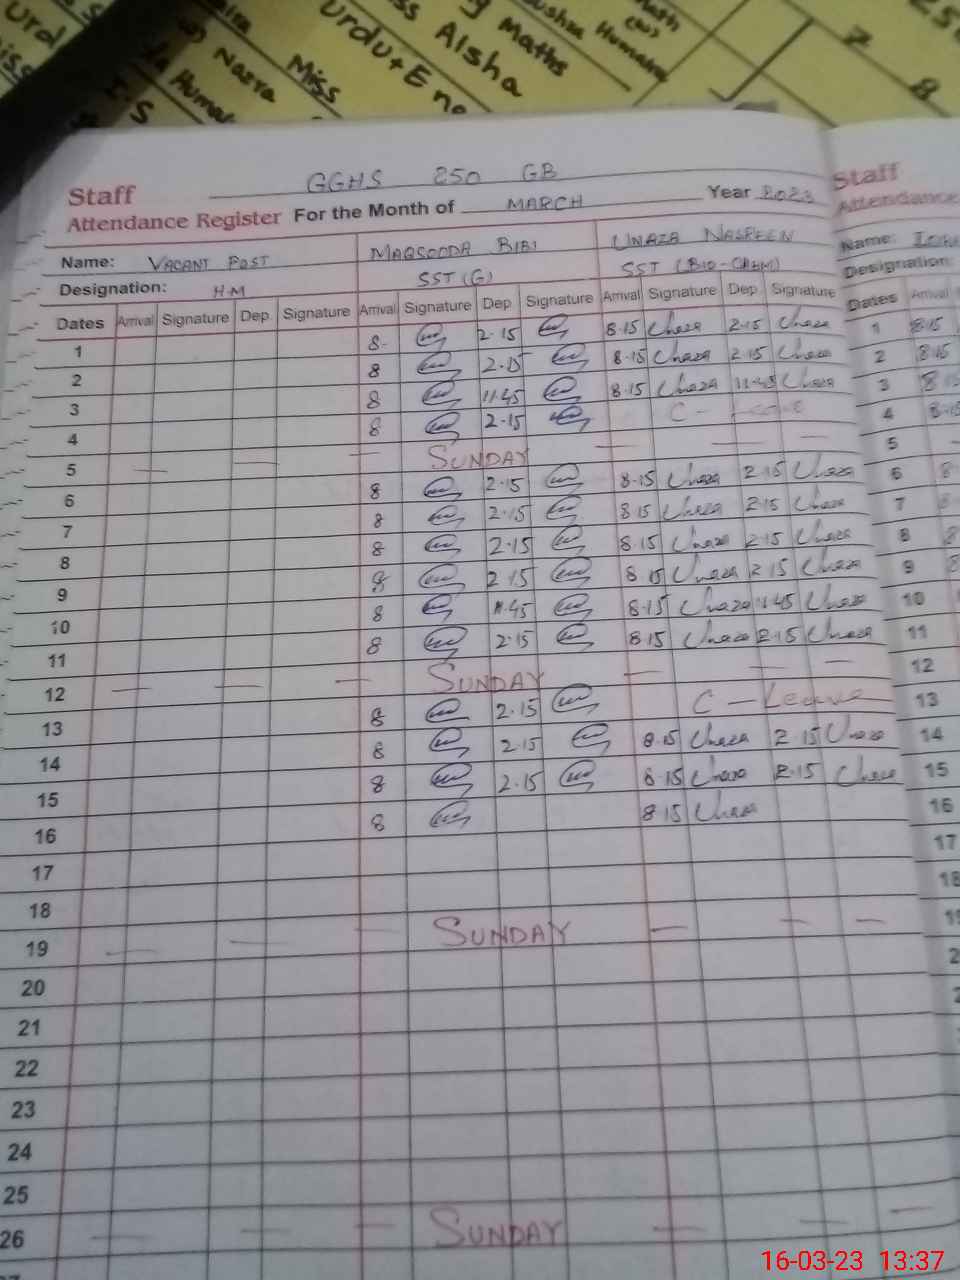 Miss
Nasra
Miss Aisha
Urdu + Eno
Maths
Humaira
7
8
GGHS 250 GB
Staff
Attendance Register For the Month of MARCH Year 2023
Name: VACANT POST MAQSOODA BIBI UNAZA NASREEN
Designation: H.M SST (G) SST (BIO-CHEM)
Dates Arrival Signature Dep Signature Arrival Signature Dep Signature Arrival Signature Dep. Signature
1 8- 2.15 8.15 Unaza 2.15 Unaza
2 8 2.15 8.15 Unaza 2.15 Unaza
3 8 11.45 8.15 Unaza 11.45 Unaza
4 8 2.15 C- Leave
5 — — — SUNDAY — — —
6 8 2.15 8.15 Unaza 2.15 Unaza
7 8 2.15 8.15 Unaza 2.15 Unaza
8 8 2.15 8.15 Unaza 2.15 Unaza
9 8 2.15 8.15 Unaza 2.15 Unaza
10 8 11.45 8.15 Unaza 11.45 Unaza
11 8 2.15 8.15 Unaza 2.15 Unaza
12 — — — SUNDAY — — —
13 8 2.15 C - Leave
14 8 2.15 8.15 Unaza 2.15 Unaza
15 8 2.15 8.15 Unaza 2.15 Unaza
16 8 8.15 Unaza
17
18
19 — — — SUNDAY — — —
20
21
22
23
24
25
26 — — — SUNDAY — — —
Staff
Attendance
Name:
Designation:
Dates Arrival
1 8.15
2 8.15
3 8.15
4 8.15
5 —
6 8
7 8
8 8
9 8
10
11
12
13
14
15
16
17
18
19
16-03-23 13:37